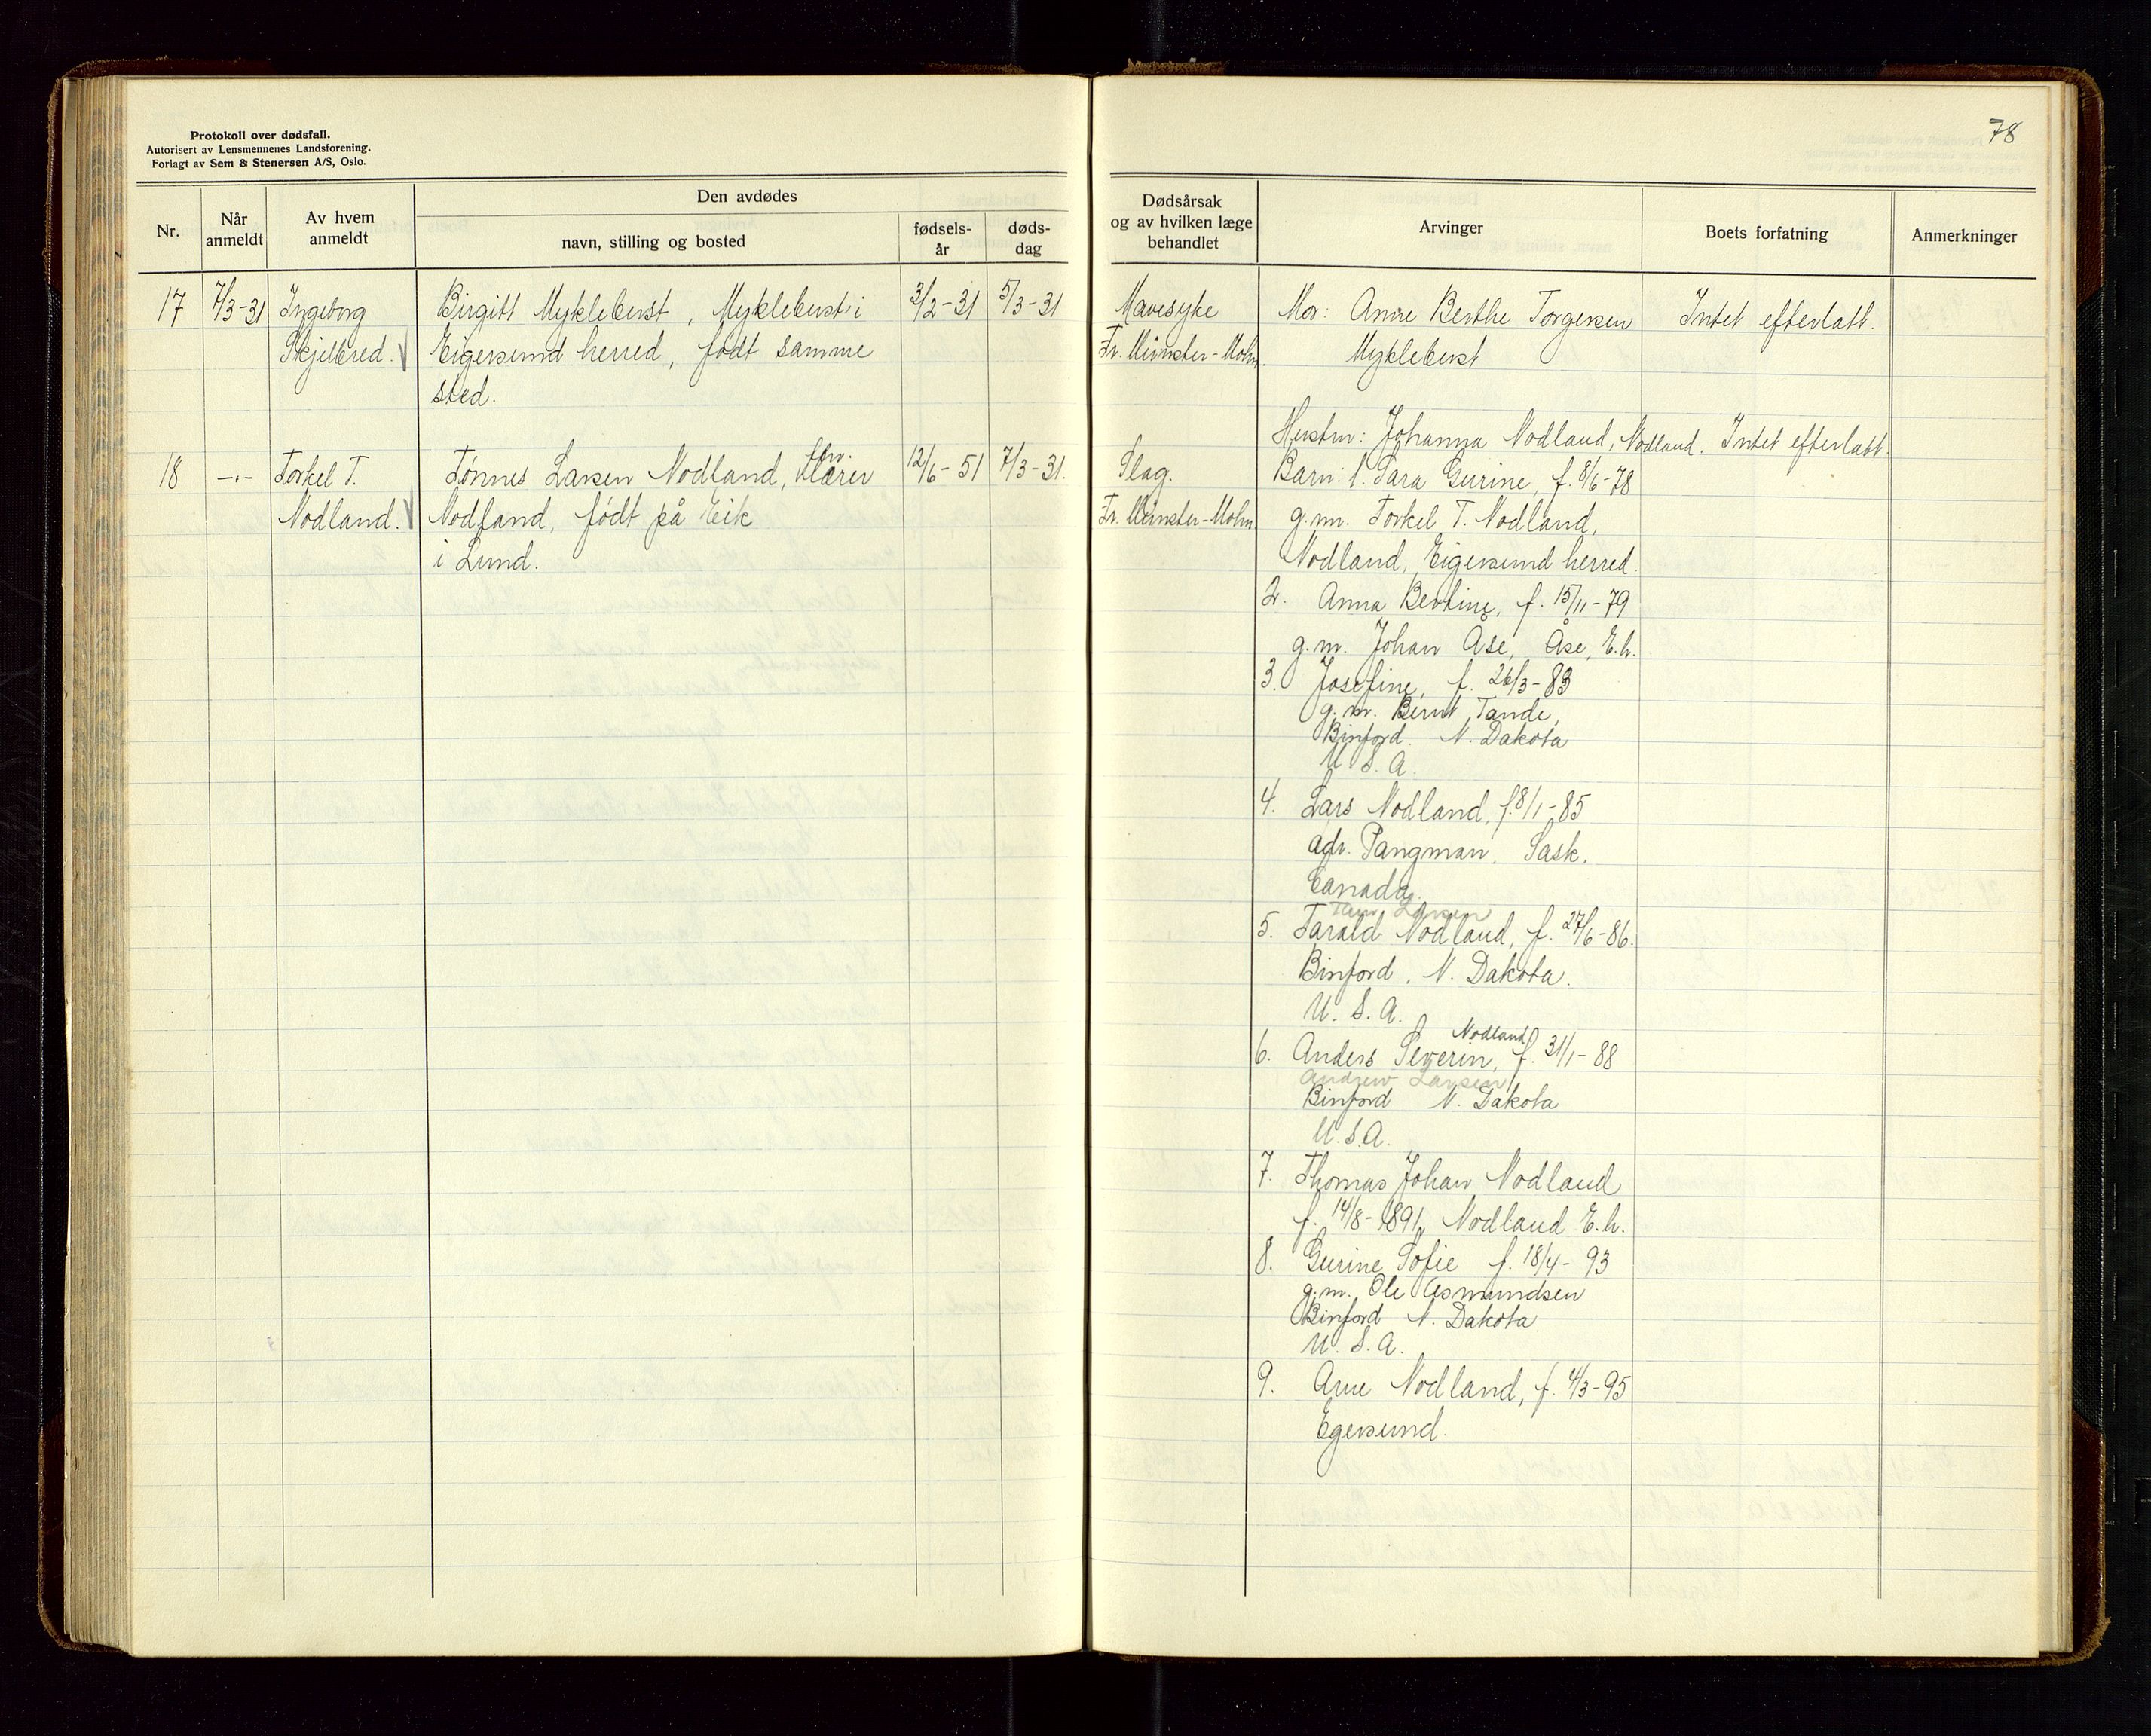 Protokoll over dødsfall.
Autorisert av Lensmennenes Landsforening.
Forlagt av Sem & Stenersen A/S, Oslo.
78
Nr.
Når anmeldt
Av hvem anmeldt
Den avdødes
navn, stilling og bosted
fødsels-år
døds-dag
Dødsårsak og av hvilken læge behandlet
Arvinger
Boets forfatning
Anmerkninger
17 7/3-31 Ingeborg Birgitt Myklebust, Myklebust i 3/2-31 5/3-31 Mavesyke Mor: Anne Berthe Torgersen Intet efterlatt.
Skjelbred. Eigersund herred, født samme Fr. Münster-Mohn. Myklebust
sted.
Hustru: Johanna Nodland, Nodland. Intet efterlatt.
18 -"- Torkel T. Tønnes Larsen Nodland, 12/6-51 7/3-31. Slag. Barn: 1. Sara Gurine, f. 8/6-78
Nodland. Nodland, født på Eik Fr. Münster-Mohn g.m. Torkel T. Nodland,
i Lund. Nodland, Eigersund herred.
2. Anna Bertine, f. 15/11-79
g.m. Johan Åse, Åse, E.h.
3. Josefine, f. 26/3-83
g.m. Bernt Tande,
Binford. N. Dakota
U.S.A.
4. Lars Nodland, f. 8/1-85
adr. Pangman, Sask.
Canada.
Larsen
5. Tarald Nodland, f. 27/6-86.
Binford, N. Dakota.
U.S.A.
Nodland
6. Anders Severin, f. 31/1-88
Andrew Larsen
Binford N. Dakota
U.S.A.
7. Thomas Johan Nodland
f. 14/8-1891, Nodland E.h.
8. Gurine Sofie f. 18/4-93
g.m. Ole Asmundsen
Binford N. Dakota
U.S.A.
9. Arne Nodland, f. 4/3-95
Egersund.